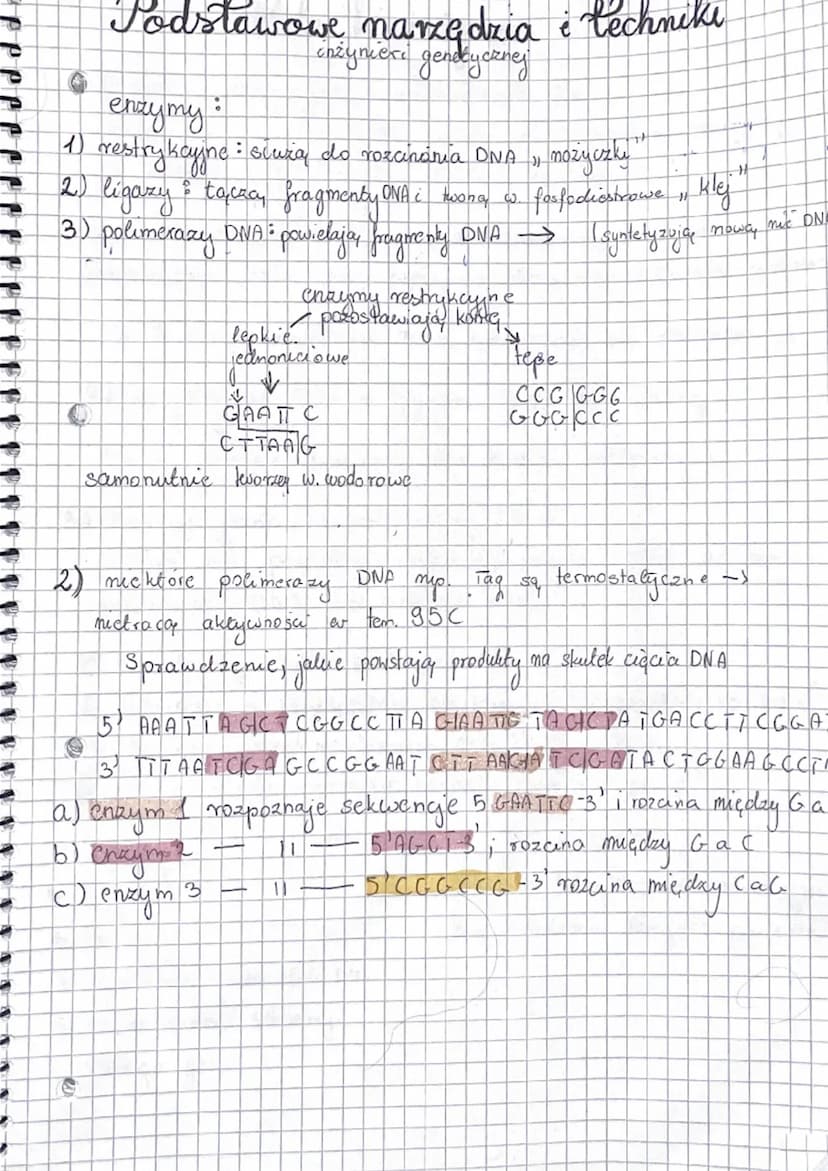 Podstawowe narzędzia i techniki
inżynieri genetycznej
enzymy:
1) restrykcyjne: służą do rozcinania DNA „nożyczki"
2) ligazy: łączą fragmenty DNA i tworzą w. fosfodiestrowe „klej"
3) polimerazy DNA: powielają fragmenty DNA → (syntetyzują nową nić DN
enzymy restrykcyjne
pozostawiają końce
lepkie
jednoniciowe
tępe
CCG|GGG
GGG|CCC
G|AATTC
CTTAA|G
samorzutnie tworzą w. wodorowe
2) niektóre polimerazy DNA np. Taq są termostatyczne →
nietracą aktywności w tem. 95C
Sprawdzenie, jakie powstają produkty na skutek cięcia DNA
5' AAATTAG|CTCGGCCTTAG|AATTGTAG|CTATGACCTTCGGA
3' TTTAATC|GAGCCGGAATCTTAAG|ATC|GATACTGGAAGCCT
a) enzym 1 rozpoznaje sekwencje 5 GAATTC-3' i rozcina między G a
b) enzym 2 — 11 — 5'AGCT-3'; rozcina między G a C
c) enzym 3 — 11 — 5'CGGCCG-3' rozcina między C a G